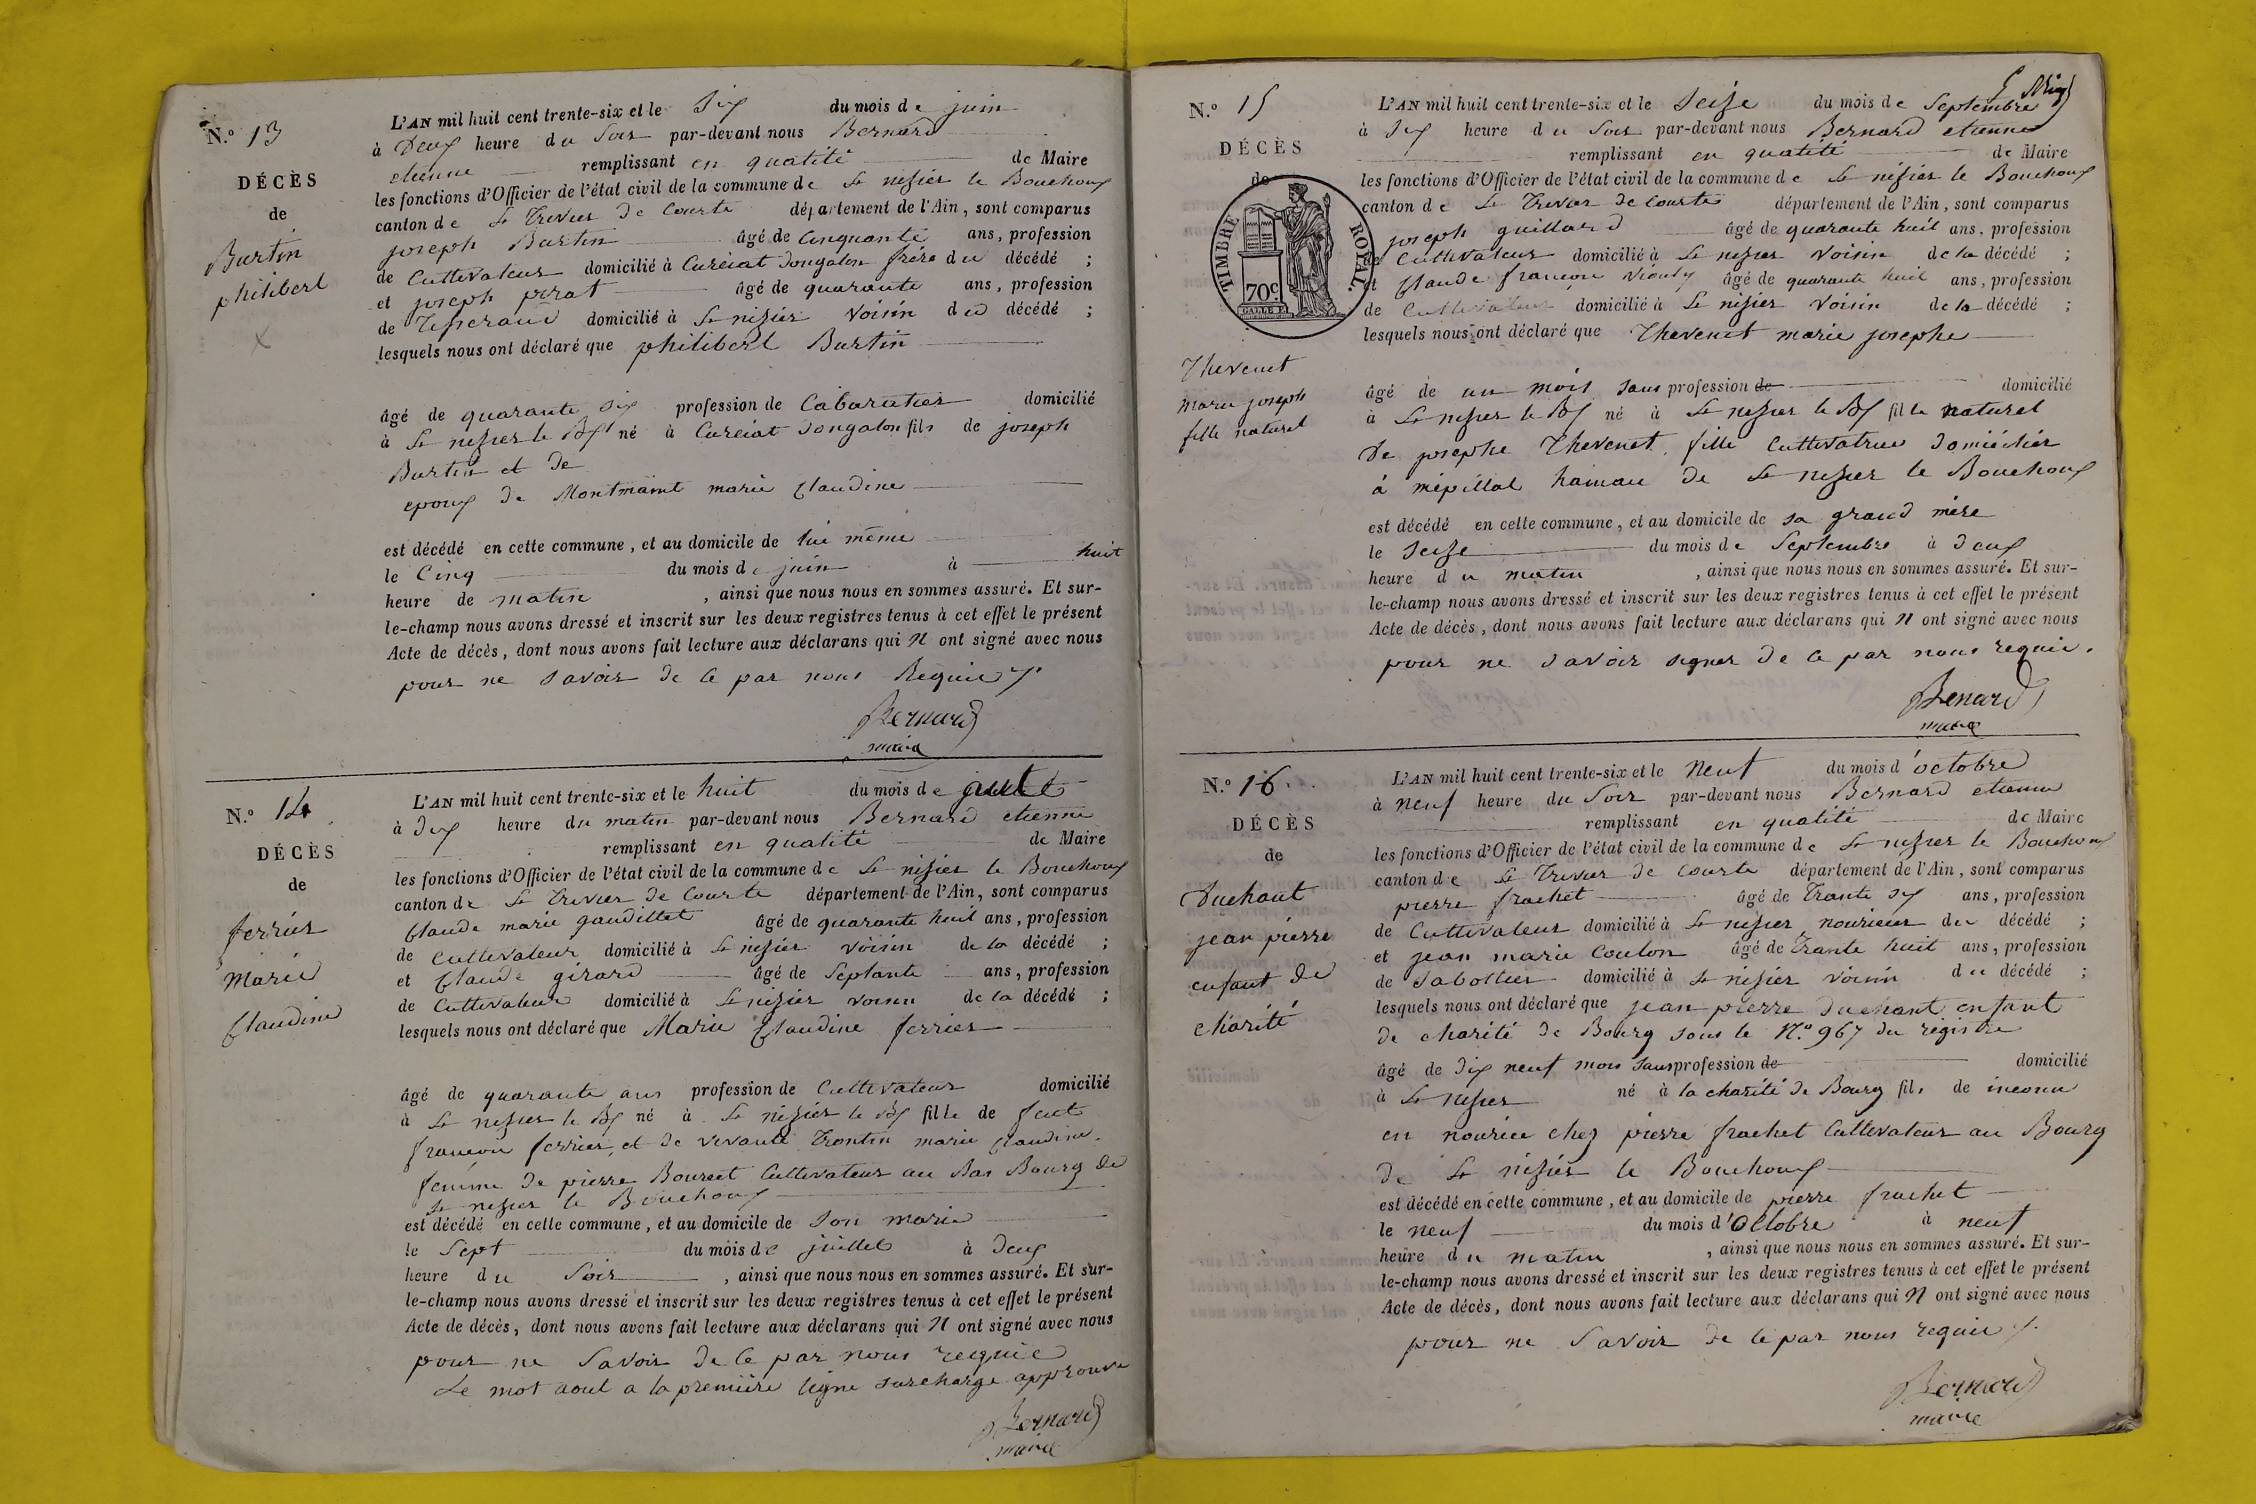 N.º 13
DÉCÈS
de
Burtin
philibert
L'AN mil huit cent trente-six et le Six du mois de juin
à Deux heure du Soir par-devant nous Bernard
etienne remplissant en qualité de Maire
les fonctions d'Officier de l'état civil de la commune de St nisier le Bouchoux
canton de St Trivier de Courte département de l'Ain, sont comparus
joseph Burtin âgé de Cinquante ans, profession
de Cultivateur domicilié à Curciat Dongalon frère du décédé ;
et joseph pirat âgé de quarante ans, profession
de Tisserand domicilié à St nisier Voisin du décédé ;
lesquels nous ont déclaré que philibert Burtin
âgé de quarante Six profession de Cabaretier domicilié
à St nisier le Bx né à Curciat Dongalon fils de joseph
Burtin et de
epoux de Montmaint marie Claudine
est décédé en cette commune, et au domicile de lui même
le Cinq du mois de juin à huit
heure de matin , ainsi que nous nous en sommes assuré. Et sur-
le-champ nous avons dressé et inscrit sur les deux registres tenus à cet effet le présent
Acte de décès, dont nous avons fait lecture aux déclarans qui N ont signé avec nous
pour ne Savoir de ce par nous Requie
Bernard
maire
N.º 14
DÉCÈS
de
ferrier
Marie
Claudine
L'AN mil huit cent trente-six et le huit du mois de
à Dix heure du matin par-devant nous Bernard etienne
remplissant en qualité de Maire
les fonctions d'Officier de l'état civil de la commune de St nisier le Bouchoux
canton de St Trivier de Courte département de l'Ain, sont comparus
Claude marie gaudillet âgé de quarante huit ans, profession
de cultivateur domicilié à St nisier Voisin de la décédé ;
et Claude girard âgé de Septante ans, profession
de Cultivateur domicilié à St nizier voisin de la décédé ;
lesquels nous ont déclaré que Marie Claudine ferrier
âgé de quarante ans profession de Cultivateur domicilié
à St nisier le Bx né à St nizier le Bx fille de feut
francois ferrier, et de vivante Trontin marie Claudine
femme de pierre Bourcet Cultivateur au Bas Bourg de
St nisier le Bouchoux
est décédé en cette commune, et au domicile de Son marie
le Sept du mois de juillet à Deux
heure du Soir , ainsi que nous nous en sommes assuré. Et sur-
le-champ nous avons dressé et inscrit sur les deux registres tenus à cet effet le présent
Acte de décès, dont nous avons fait lecture aux déclarans qui N ont signé avec nous
pour ne Savoir de Ce par nous requie
Le mot aout a la première ligne surcharge approuve
Bernard
maire
N.º 15
DÉCÈS
de
TIMBRE ROYAL
70c
Thevenet
marie joseph
fille naturel
L'AN mil huit cent trente-six et le Seize du mois de Septembre
à Six heure du Soir par-devant nous Bernard etienne
remplissant en qualité de Maire
les fonctions d'Officier de l'état civil de la commune de St nisier le Bouchoux
canton de St Trivier de Courte département de l'Ain, sont comparus
joseph guillard âgé de quarante huit ans, profession
de Cultivateur domicilié à St nizier Voisin de la décédé ;
et Claude francois âgé de quarante huit ans, profession
de Cultivateur domicilié à St nizier Voisin de la décédé ;
lesquels nous ont déclaré que Thevenet marie josephe
âgé de un mois sans profession de domicilié
à St nisier le Bx né à St nizier le Bx fille naturel
De josephe Thevenet fille Cultivatrice Domicilier
à mépillat hamau de St nizier le Bouchoux
est décédé en cette commune, et au domicile de sa grand mère
le Seize du mois de Septembre à Deux
heure du matin , ainsi que nous nous en sommes assuré. Et sur-
le-champ nous avons dressé et inscrit sur les deux registres tenus à cet effet le présent
Acte de décès, dont nous avons fait lecture aux déclarans qui N ont signé avec nous
pour ne Savoir signer de ce par nous requie.
Benard
maire
N.º 16.
DÉCÈS
de
Duchant
jean pierre
enfant de
charité
L'AN mil huit cent trente-six et le Neuf du mois d'octobre
à neuf heure du Soir par-devant nous Bernard etienne
remplissant en qualité de Maire
les fonctions d'Officier de l'état civil de la commune de St nizier le Bouchoux
canton de St Trivier de Courte département de l'Ain, sont comparus
pierre frachet âgé de Trante Six ans, profession
de Cultivateur domicilié à St nisier nouricier du décédé ;
et jean marie Coulon âgé de Trante huit ans, profession
de Sabottier domicilié à St nisier Voisin du décédé ;
lesquels nous ont déclaré que jean pierre Duchant enfant
de charité de Bourg sous le N.º 967 du registre
âgé de dix neuf mois sans profession de domicilié
à St nisier né à la charité de Bourg fils de inconu
en nourice chez pierre frachet Cultivateur au Bourg
de St nisier le Bouchoux
est décédé en cette commune, et au domicile de pierre frachet
le neuf du mois d'Octobre à neuf
heure du matin , ainsi que nous nous en sommes assuré. Et sur-
le-champ nous avons dressé et inscrit sur les deux registres tenus à cet effet le présent
Acte de décès, dont nous avons fait lecture aux déclarans qui N ont signé avec nous
pour ne Savoir de ce par nous requie
Bernard
maire